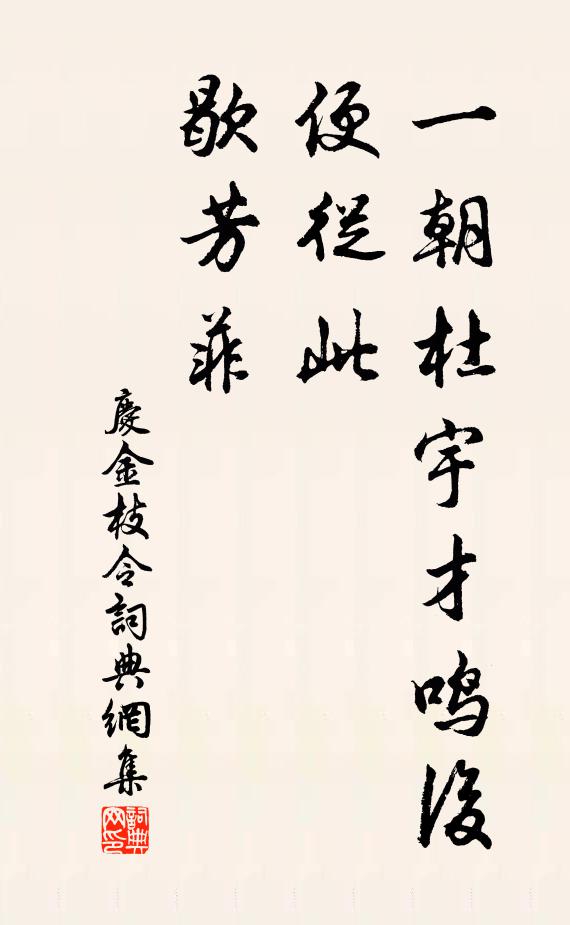 一朝杜宇才鳴後
便從此
歇芳菲
慶金枝令詞典網集
詞典網印